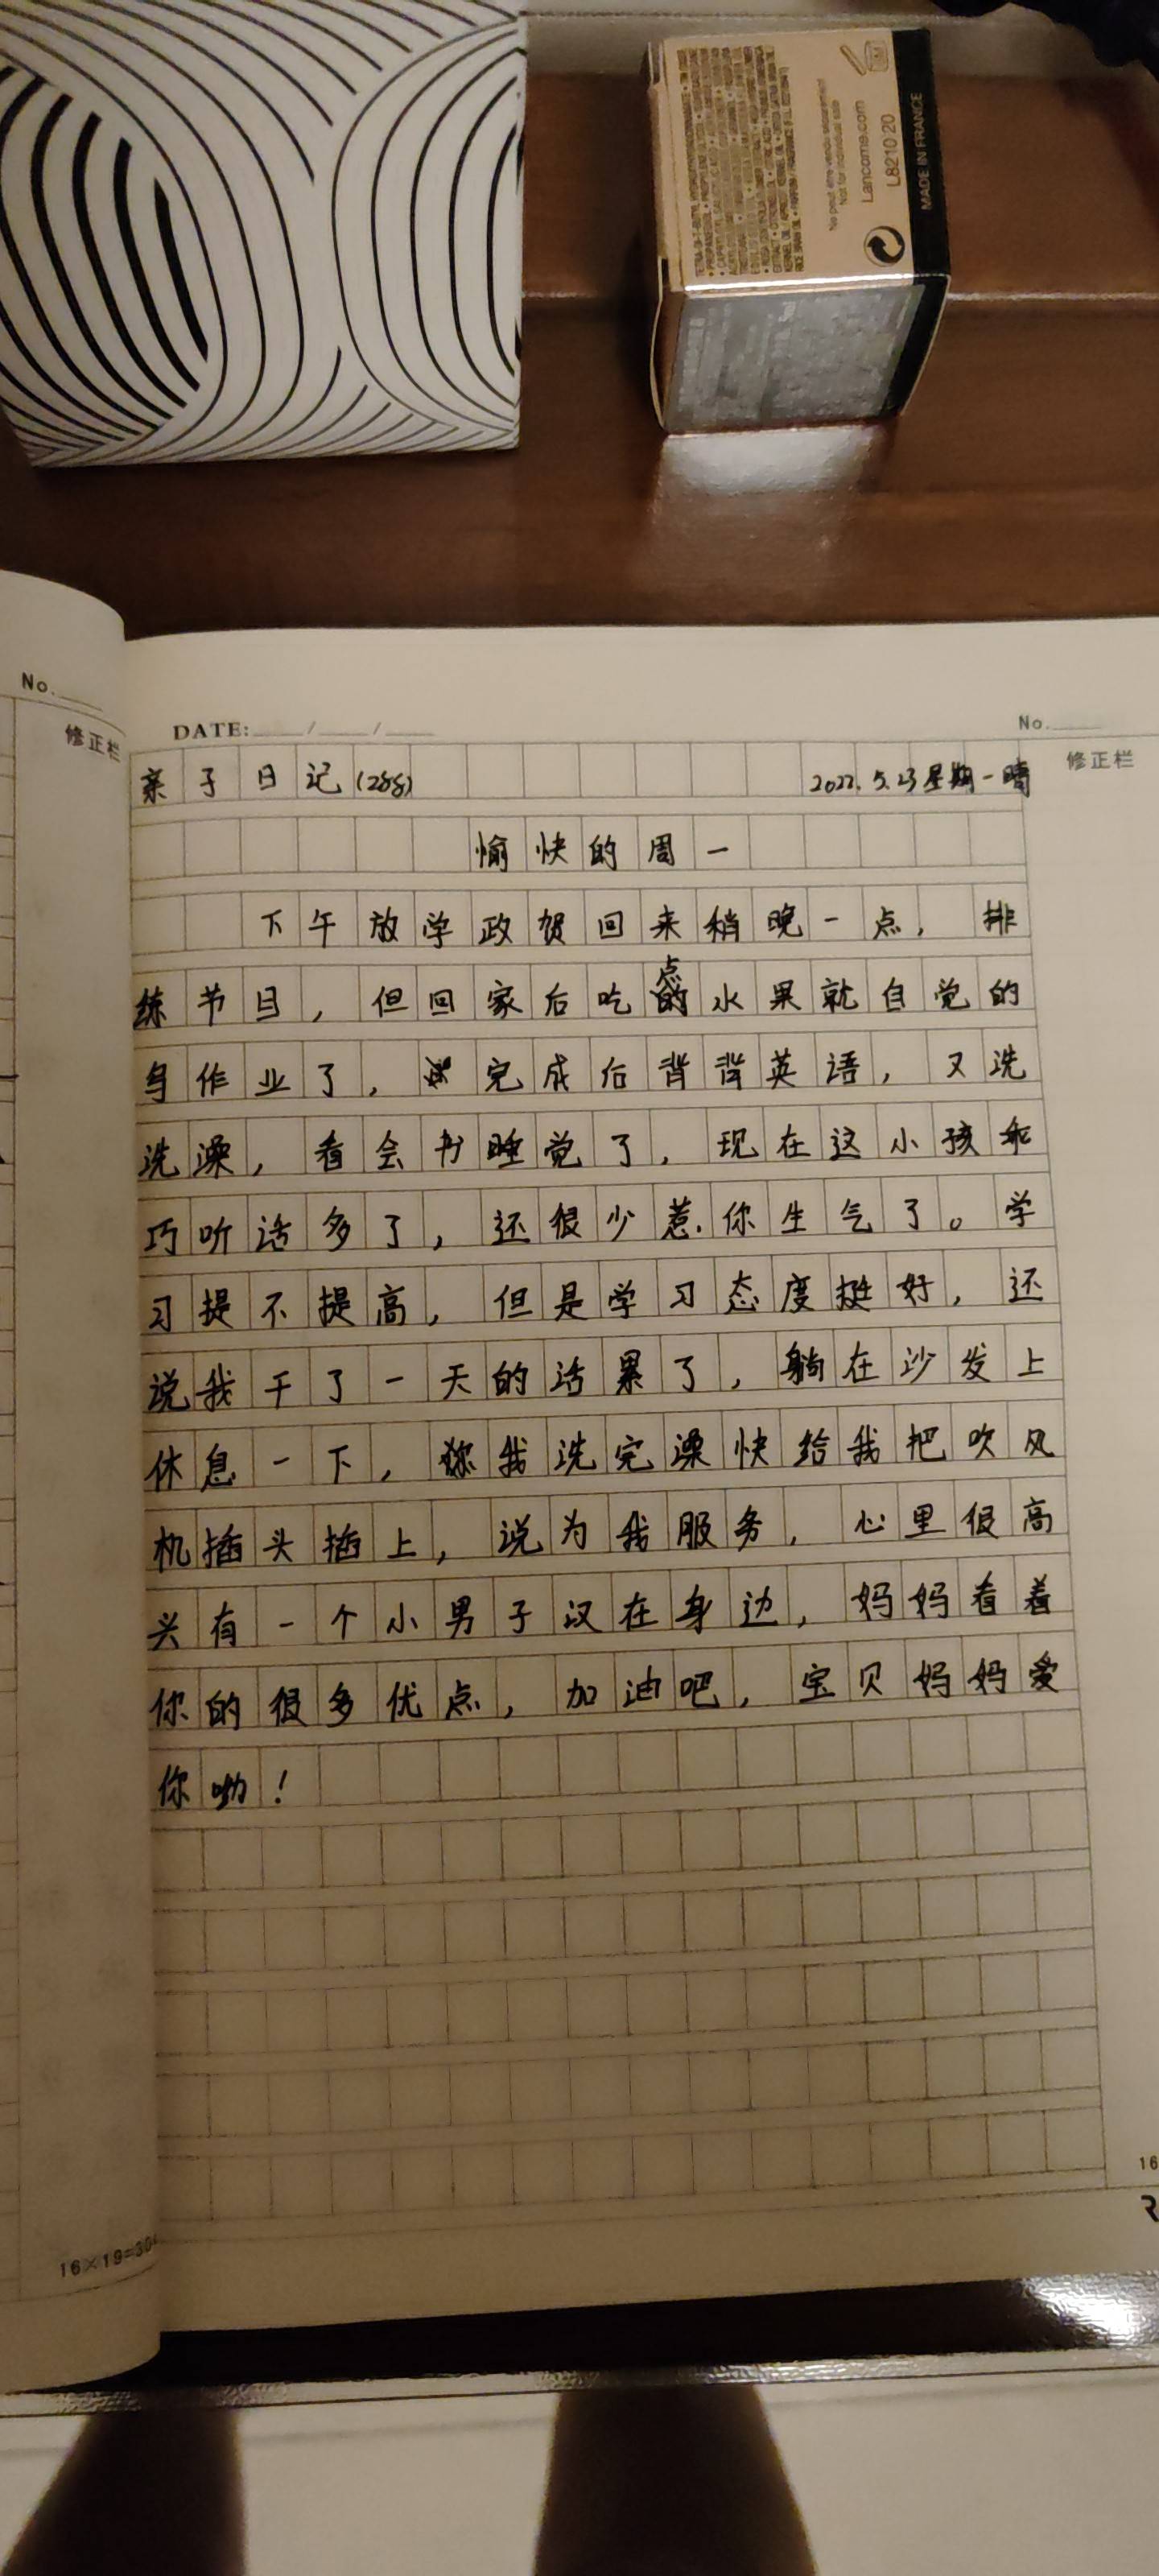 No peut être vendu séparément
Not for individual sale
Lancome.com
L8210 20
MADE IN FRANCE
No.
修正栏
DATE: / /
No.
修正栏
亲子日记(288) 2022.5.23星期一晴
愉快的周一
下午放学政贺回来稍晚一点，排
练节目，但回家后吃点水果就自觉的
写作业了，完成后背背英语，又洗
洗澡，看会书睡觉了，现在这小孩乖
巧听话多了，还很少惹你生气了。学
习提不提高，但是学习态度挺好，还
说我干了一天的活累了，躺在沙发上
休息一下，我洗完澡快给我把吹风
机插头插上，说为我服务，心里很高
兴有一个小男子汉在身边，妈妈看着
你的很多优点，加油吧，宝贝妈妈爱
你呦！
16×19=304
16